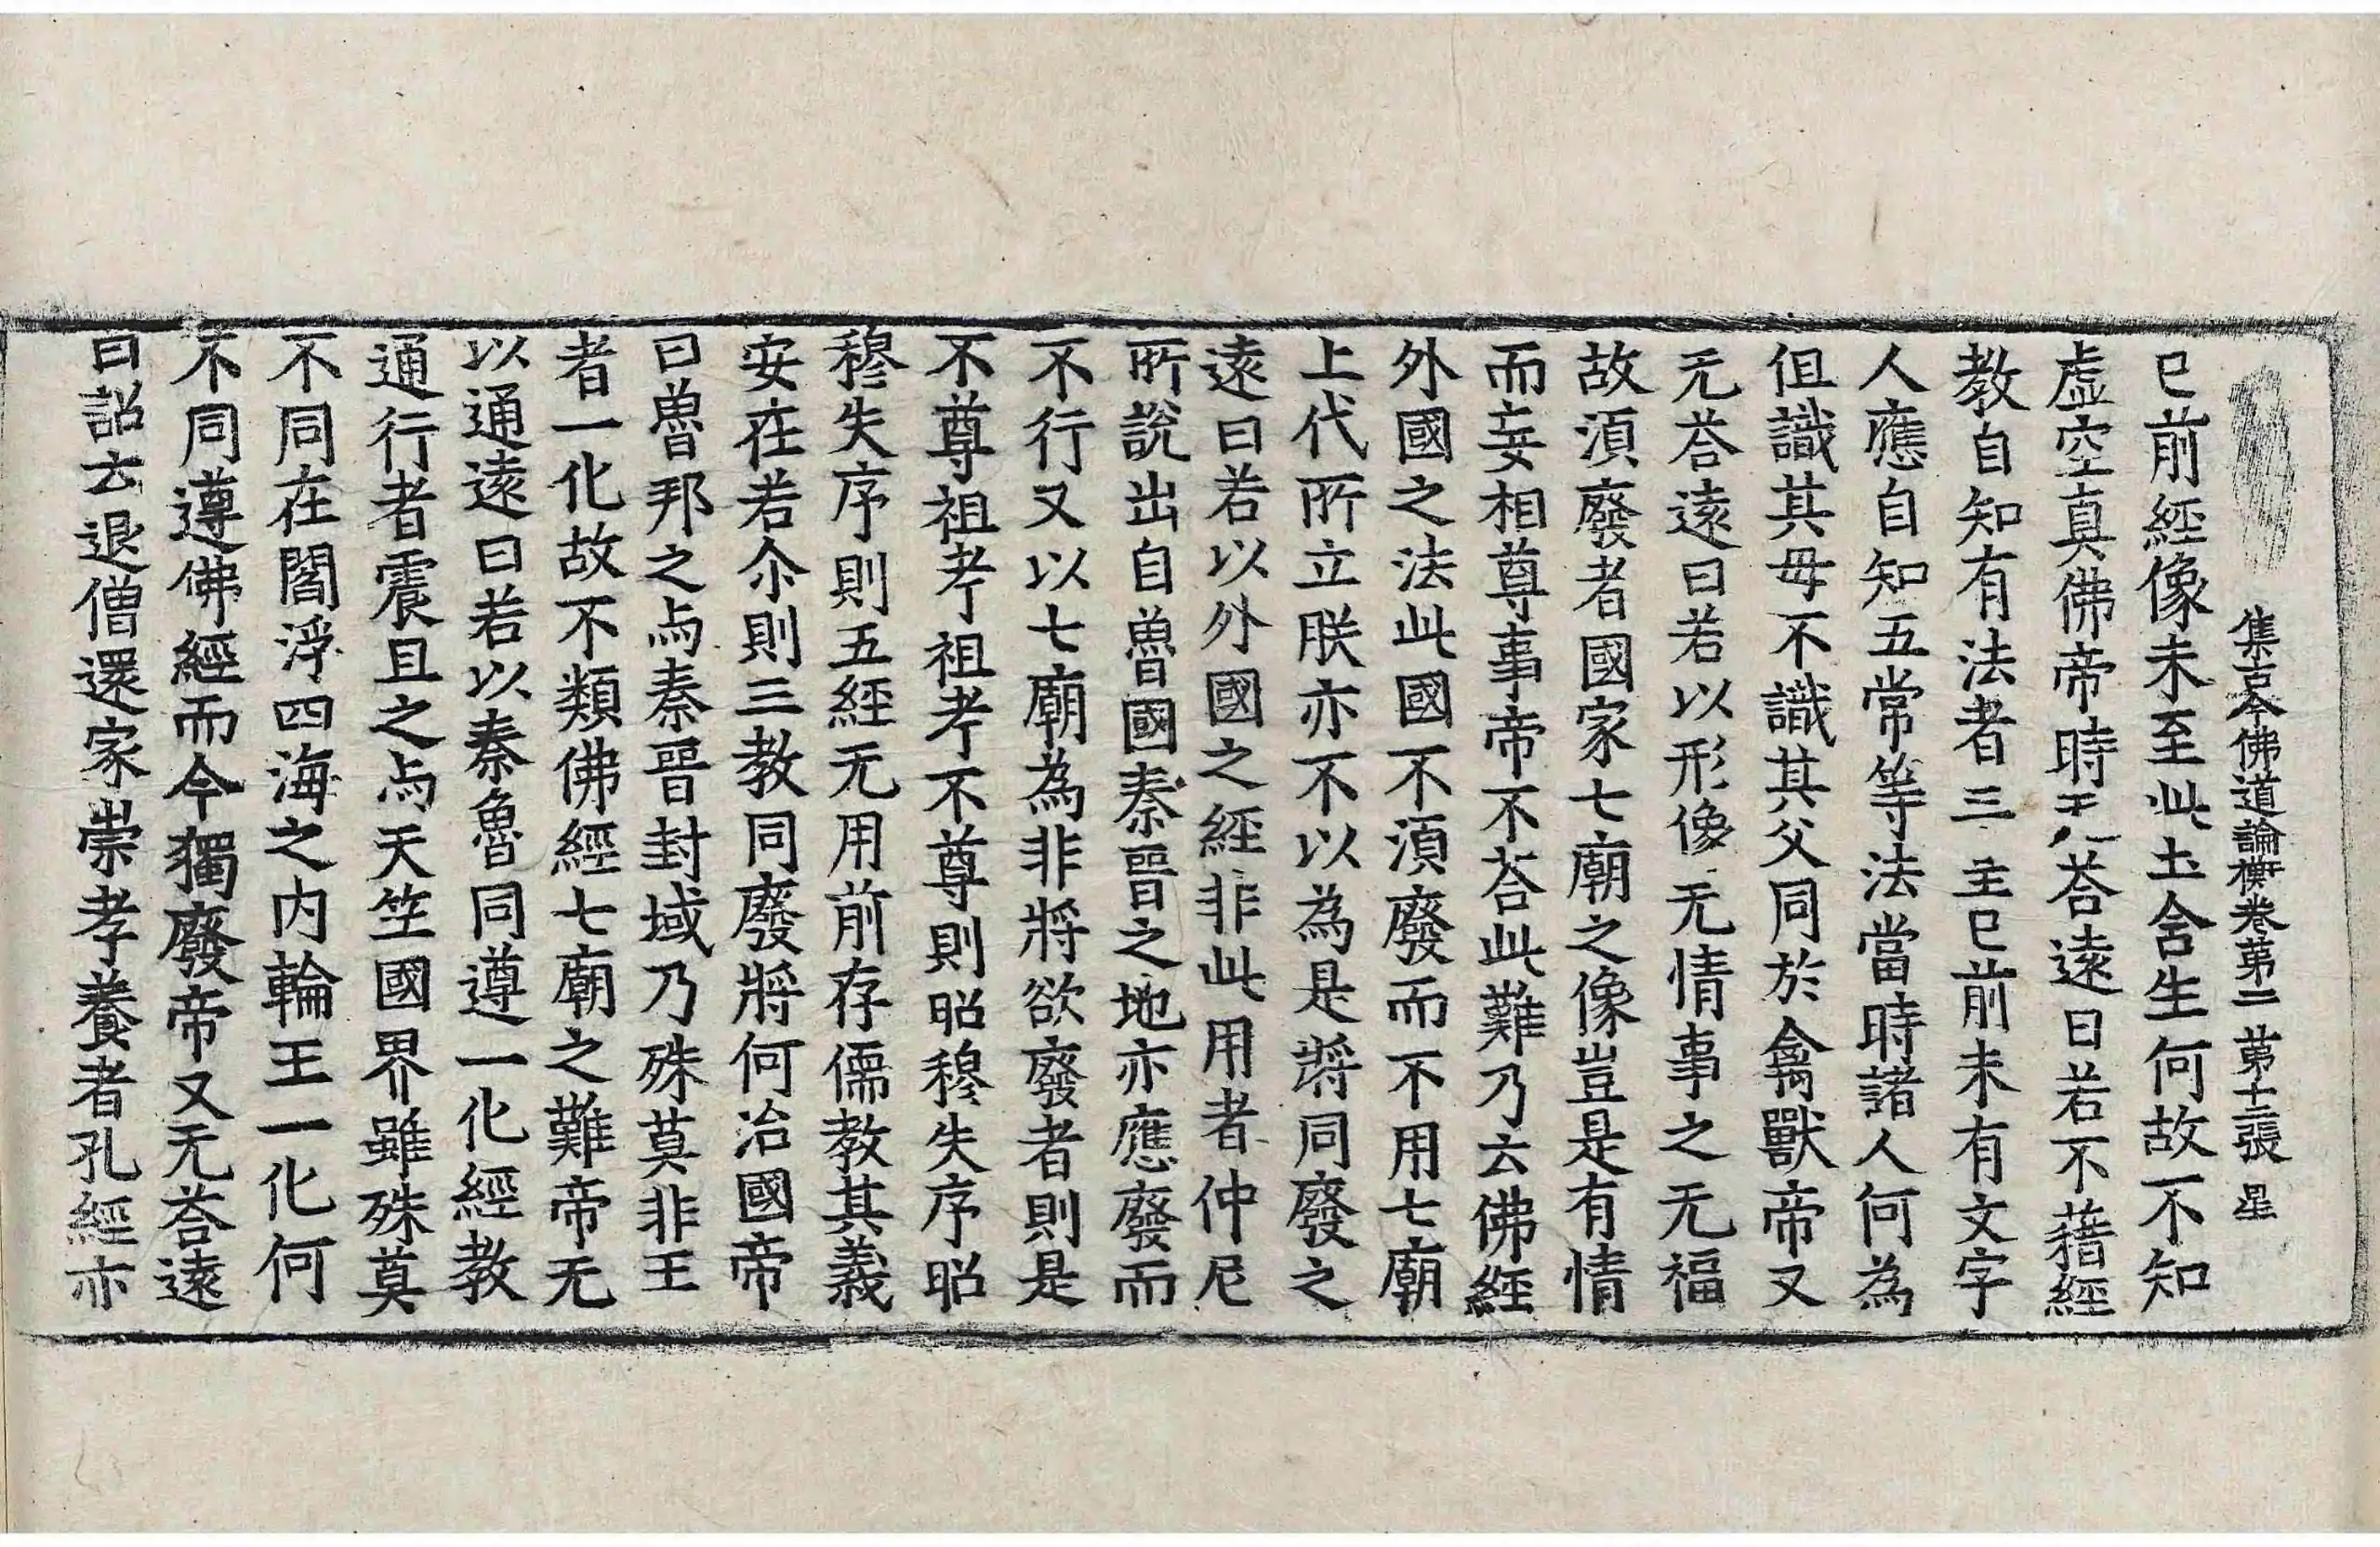 集古今佛道論衡卷第二　第十二張　星
已前經像未至此土含生何故不知
虛空真佛帝時无荅遠曰若不藉經
教自知有法者三主已前未有文字
人應自知五常等法當時諸人何為
但識其母不識其父同於禽獸帝又
无荅遠曰若以形像无情事之无福
故湏廢者國家七廟之像豈是有情
而妄相尊事帝不荅此難乃云佛經
外國之法此國不湏廢而不用七廟
上代所立朕亦不以為是將同廢之
遠曰若以外國之經非此用者仲尼
所說出自魯國秦晉之地亦應廢而
不行又以七廟為非將欲廢者則是
不尊祖考祖考不尊則昭穆失序昭
穆失序則五經无用前存儒教其義
安在若尒則三教同廢將何治國帝
曰魯邦之与秦晉封域乃殊莫非王
者一化故不類佛經七廟之難帝无
以通遠曰若以秦魯同遵一化經教
通行者震旦之与天竺國界雖殊莫
不同在閻浮四海之內輪王一化何
不同遵佛經而今獨廢帝又无荅遠
曰詔云退僧還家崇孝養者孔經亦